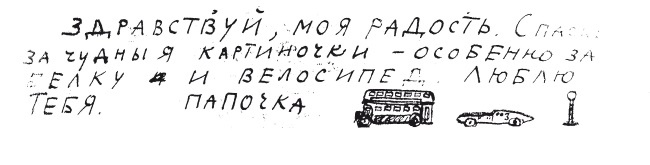 ЗДРАВСТВУЙ, МОЯ РАДОСТЬ.
ЗА ЧУДНЫЯ КАРТИНОЧКИ – ОСОБЕННО ЗА
БЕЛКУ И ВЕЛОСИПЕД. ЛЮБЛЮ
ТЕБЯ. ПАПОЧКА